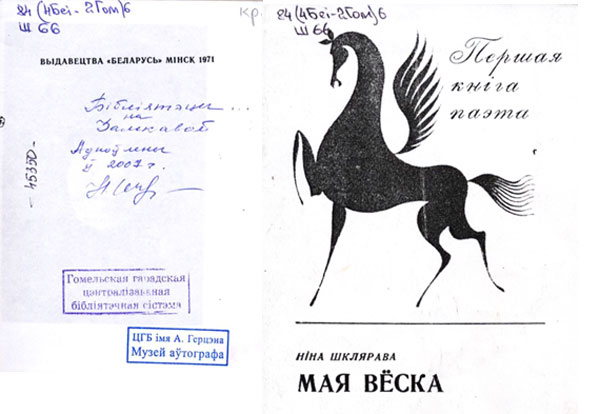 84(4Беі-2Гом)6
Ш 66
кр.
ВЫДАВЕЦТВА «БЕЛАРУСЬ» МІНСК 1971
Бібліятэцы
на
ў 2007 г.
45350
Гомельская гарадская
цэнтралізаваная
бібліятэчная сістэма
ЦГБ імя А. Герцэна
Музей аўтографа
84(4Беі-2Гом)6
Ш 66
Першая
кніга
паэта
НІНА ШКЛЯРАВА
МАЯ ВЁСКА